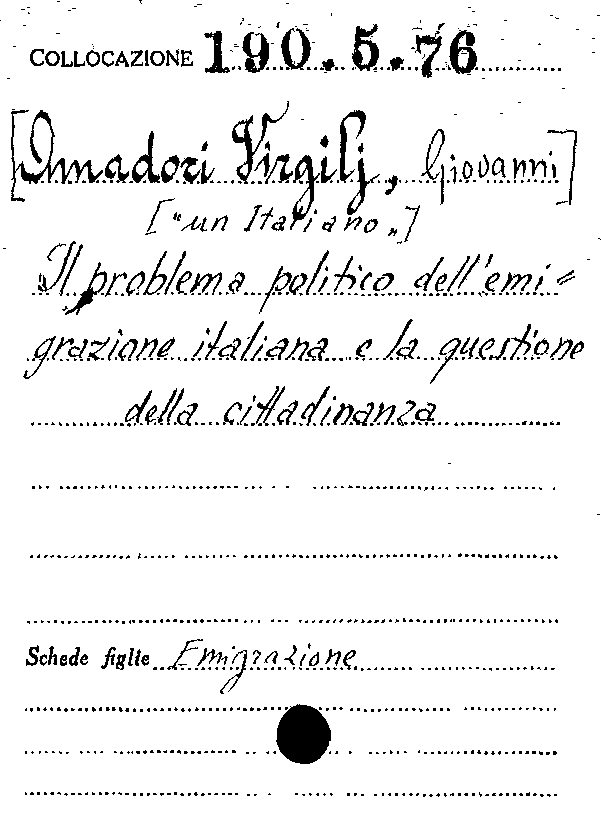 COLLOCAZIONE 190.5.76
[Amadori Virgilj, Giovanni]
["un Italiano„]
Il problema politico dell'emi=
grazione italiana e la questione
della cittadinanza
Schede figlie Emigrazione